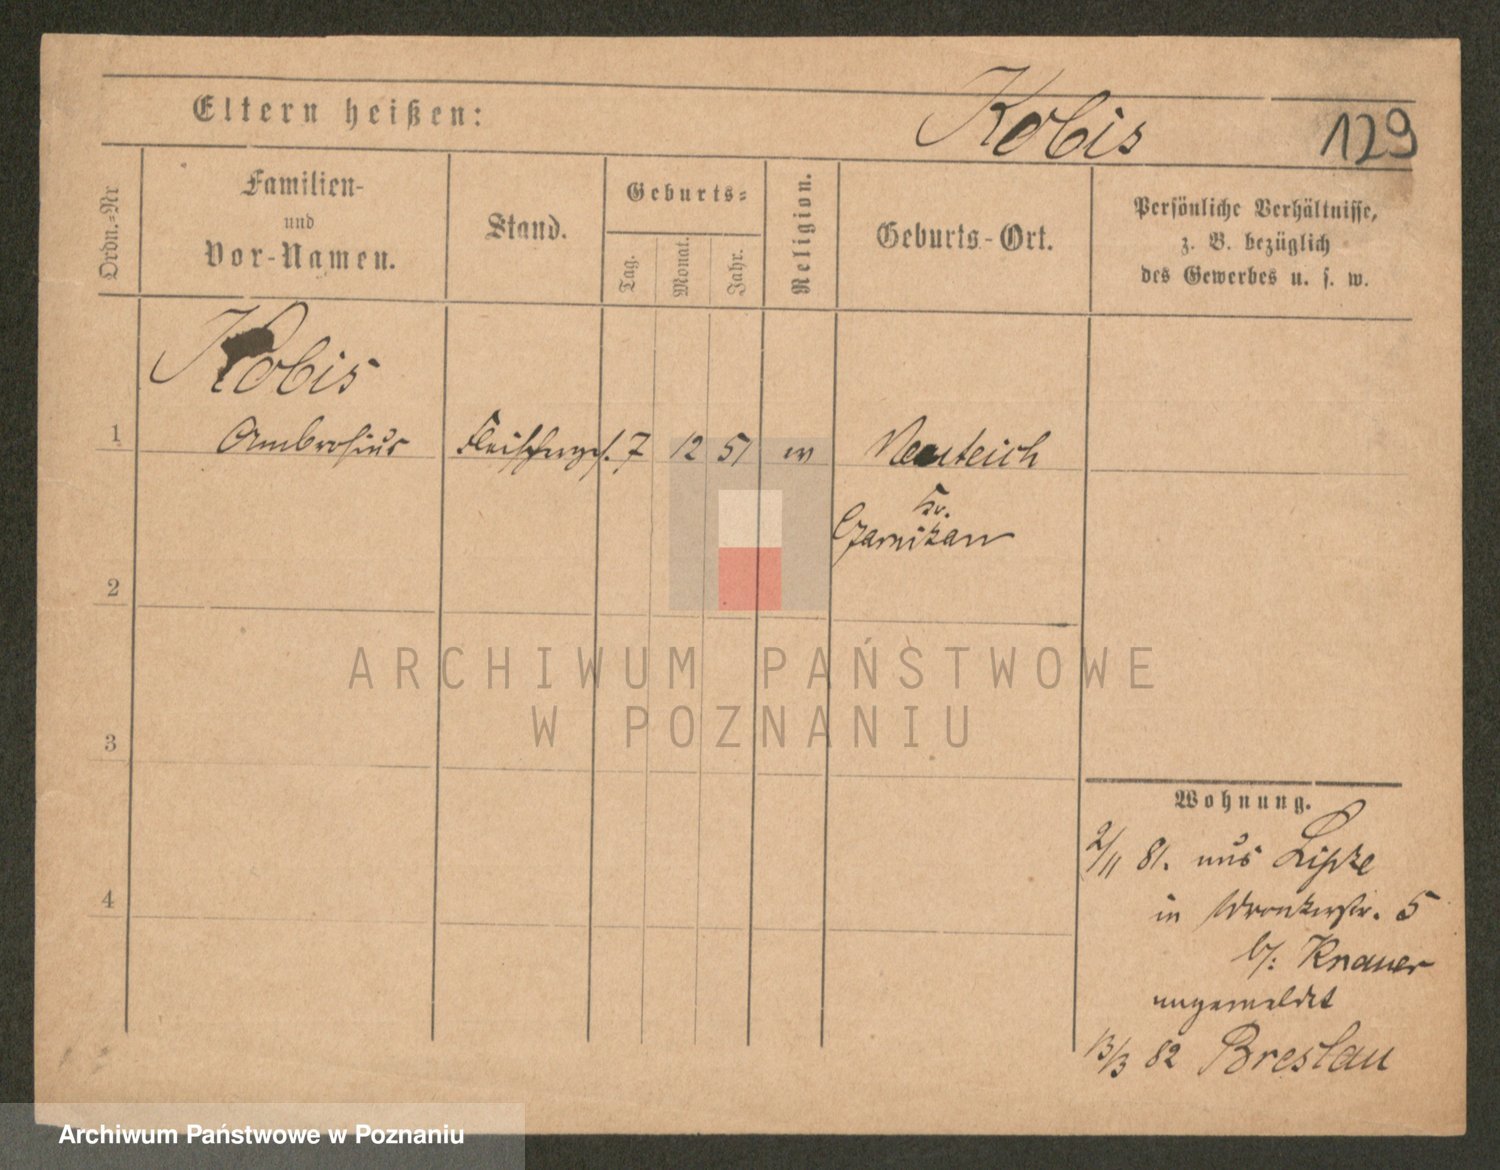 Eltern heißen:
Kobis
129
Ordn.-Nr
Familien-
und
Vor-Namen.
Stand.
Geburts-
Tag.
Monat.
Jahr.
Religion.
Geburts-Ort.
Persönliche Verhältnisse,
z. B. bezüglich
des Gewerbes u. s. w.
Kobis
1 Ambrosius Fleischerges. 7 12 51 Neuteich
Kr.
Czarnikau
2
3
4
ARCHIWUM PAŃSTWOWE
W POZNANIU
Wohnung.
2/11 81. aus
in Wronkerstr. 5
b/: Knauer
angemeldet
13/3 82 Breslau
Archiwum Państwowe w Poznaniu